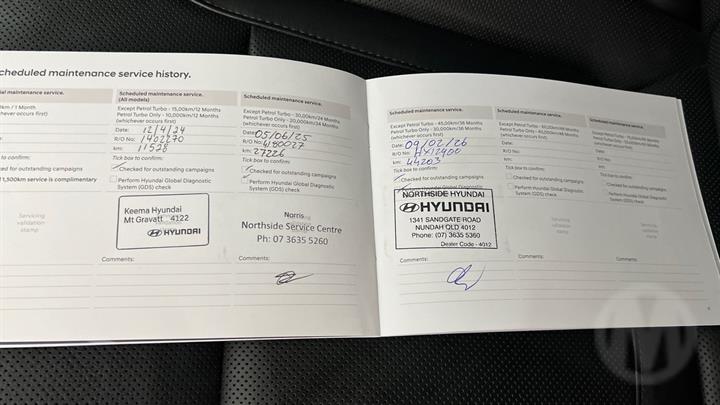 cheduled maintenance service history.
ial maintenance service.
km / 1 Month
(whichever occurs first)
to confirm:
1,500km service is complimentary
Servicing
validation
stamp
Comments:
Scheduled maintenance service.
(All models)
Except Petrol Turbo - 15,00km/12 Months
Petrol Turbo Only - 10,000km/12 Months
(whichever occurs first)
Date: 12/4/24
R/O No: 1402270
km: 11528
Tick box to confirm:
Checked for outstanding campaigns
Perform Hyundai Global Diagnostic
System (GDS) check
Keema Hyundai
Mt Gravatt 4122
HYUNDAI
Comments:
Scheduled maintenance service.
Except Petrol Turbo - 30,00km/24 Months
Petrol Turbo Only - 20,000km/24 Months
(whichever occurs first)
Date: 05/06/25
R/O No: W180027
km: 27226
Tick box to confirm:
Checked for outstanding campaigns
Perform Hyundai Global Diagnostic
System (GDS) check
Norris
Northside Service Centre
Ph: 07 3635 5260
Comments:
Scheduled maintenance service.
Except Petrol Turbo - 45,00km/36 Months
Petrol Turbo Only - 30,000km/36 Months
(whichever occurs first)
Date: 09/02/26
R/O No: HX12400
km: 44203
Tick box to confirm:
Checked for outstanding campaigns
Perform Hyundai Global Diagnostic
NORTHSIDE HYUNDAI
HYUNDAI
1341 SANDGATE ROAD
NUNDAH QLD 4012
Phone: (07) 3635 5360
Dealer Code - 4012
Comments:
Scheduled maintenance service.
Except Petrol Turbo - 60,00km/48 Months
Petrol Turbo Only - 40,000km/48 Months
(whichever occurs first)
Date:
R/O No:
km:
Tick box to confirm:
Checked for outstanding campaigns
Perform Hyundai Global Diagnostic
System (GDS) check
Servicing
validation
stamp
Comments:
Scheduled maintenance service.
(whichever occurs first)
Date:
R/O No:
km:
Tick box to confirm:
Checked for outstanding campaigns
Perform Hyundai Global Diagnostic
System (GDS) check
Servicing
validation
stamp
Comments:
M